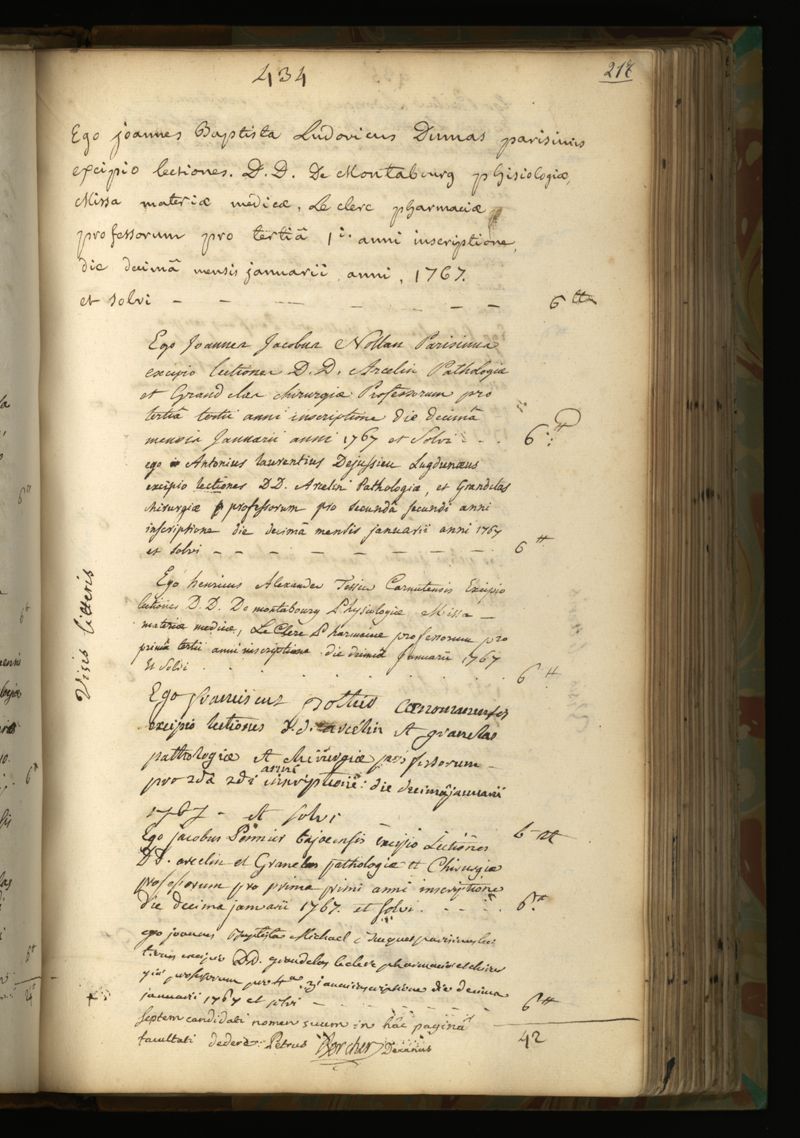 434
217
Ego joannes Baptista Ludovicus Dumas parisinus
excipio lectiones. D.D. De Montabourg phisiologiæ,
Missa materiæ medicæ, Le clerc pharmaciæ
professorum pro tertiâ 1i. anni inscriptione,
die decimâ mensis januarii anni, 1767.
et solvi — — — — — — — 6 tt
Ego Joannes Jacobus Nollan Parisinus
excipio lectiones D.D. Arcelin Pathologiæ
et Grandclas chirurgiæ Professorum pro
tertiâ tertii anni inscriptione die decimâ
mensis Januarii anni 1767 et Solvi . . . 6 tt
ego Antonius laurentius Dejussieu Lugdunæus
excipio lectiones DD. Arcelin Pathologiæ, et Grandclas
chirurgiæ professorum pro secundâ secundi anni
inscriptione die decimâ mensis januarii anni 1767
et solvi — — — — — — — — 6 tt
Visis litteris
Ego henricus Alexander Tessier Carnutensis Excipio
lectiones D.D. Demontabourg Physiologiæ Missa —
materiæ medicæ, Le Clerc Pharmaciæ professorum pro
primâ tertii anni inscriptione die decimâ Januarii 1767
Et Solvi . . . . . . . 6 tt
Ego franciscus cœnomanensis
excipio lectiones d.d. arcelin et granclas
pathologiæ et chirurgiæ professorum —
pro 2dâ 2di anni inscriptione: die decimâ januarii
1767 — et solvi 6 tt
Ego jacobus bajocensis excipio Lectiones
DD. arcelin et Granclas pathologiæ et Chirurgiæ
professorum pro prima primi anni inscriptione
die decima januarii 1767. et solvi. — — — 6 tt
ego joannes Baptista Michael parisinus lec
tiones excipio DD. grandclas leclerc pharmaciæ et chirur
giæ professorum pro 4ta 3i anni inscriptione die decima
januarii 1767 et solvi — — — — — — 6 tt
Septem candidati nomen suum in hâc paginâ
facultati dedere. Petrus Bercher Decanus 42